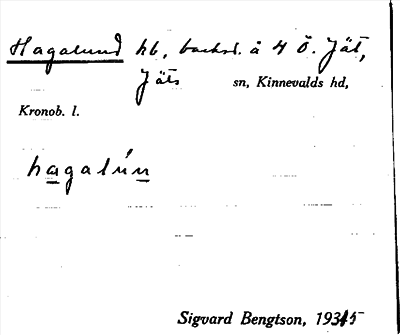 Hagalund hb, backst. å 4 Ö. Jät,
Jäts sn, Kinnevalds hd,
Kronob. l.
hagalún
Sigvard Bengtson, 1935